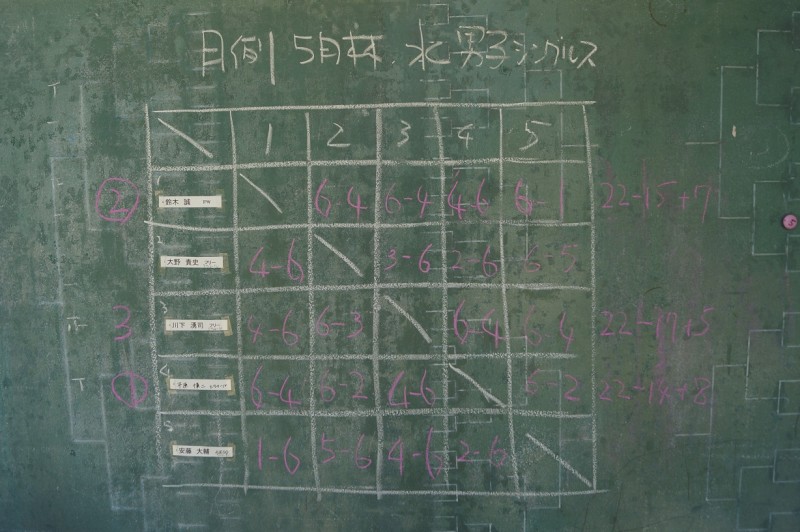 月例 5月杯 水 男子シングルス
1 2 3 4 5
② 1 鈴木 誠 6-4 6-4 4-6 6-1 22-15+7
2 大野 貴史 フリー 4-6 3-6 2-6 6-5
3 3 川下 フリー 4-6 6-3 6-4 6-4 22-17+5
① 4 6-4 6-2 4-6 6-2 22-14+8
5 安藤 大輔 1-6 5-6 4-6 2-6
T
T
5